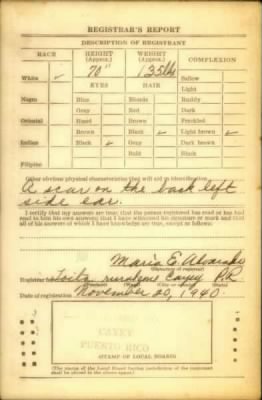 REGISTRAR'S REPORT
DESCRIPTION OF REGISTRANT
RACE HEIGHT (Approx.) WEIGHT (Approx.) COMPLEXION
White ✓ 70" 135 lbs Sallow
EYES HAIR Light
Negro Blue Blonde Ruddy
Gray Red Dark
Oriental Hazel Brown Freckled
Brown Black ✓ Light brown ✓
Indian Black ✓ Gray Dark brown
Bald Black
Filipino
Other obvious physical characteristics that will aid in identification
A scar on the back left
side ear.
I certify that my answers are true; that the person registered has read or has had
read to him his own answers; that I have witnessed his signature or mark and that
all of his answers of which I have knowledge are true, except as follows:
Maria E.
(Signature of registrar)
Registrar for Cayey P.R.
(Precinct) (Ward) (City or county) (State)
Date of registration November 20, 1940.
CAYEY
PUERTO RICO
(STAMP OF LOCAL BOARD)
(The stamp of the Local Board having jurisdiction of the registrant
shall be placed in the above space.)